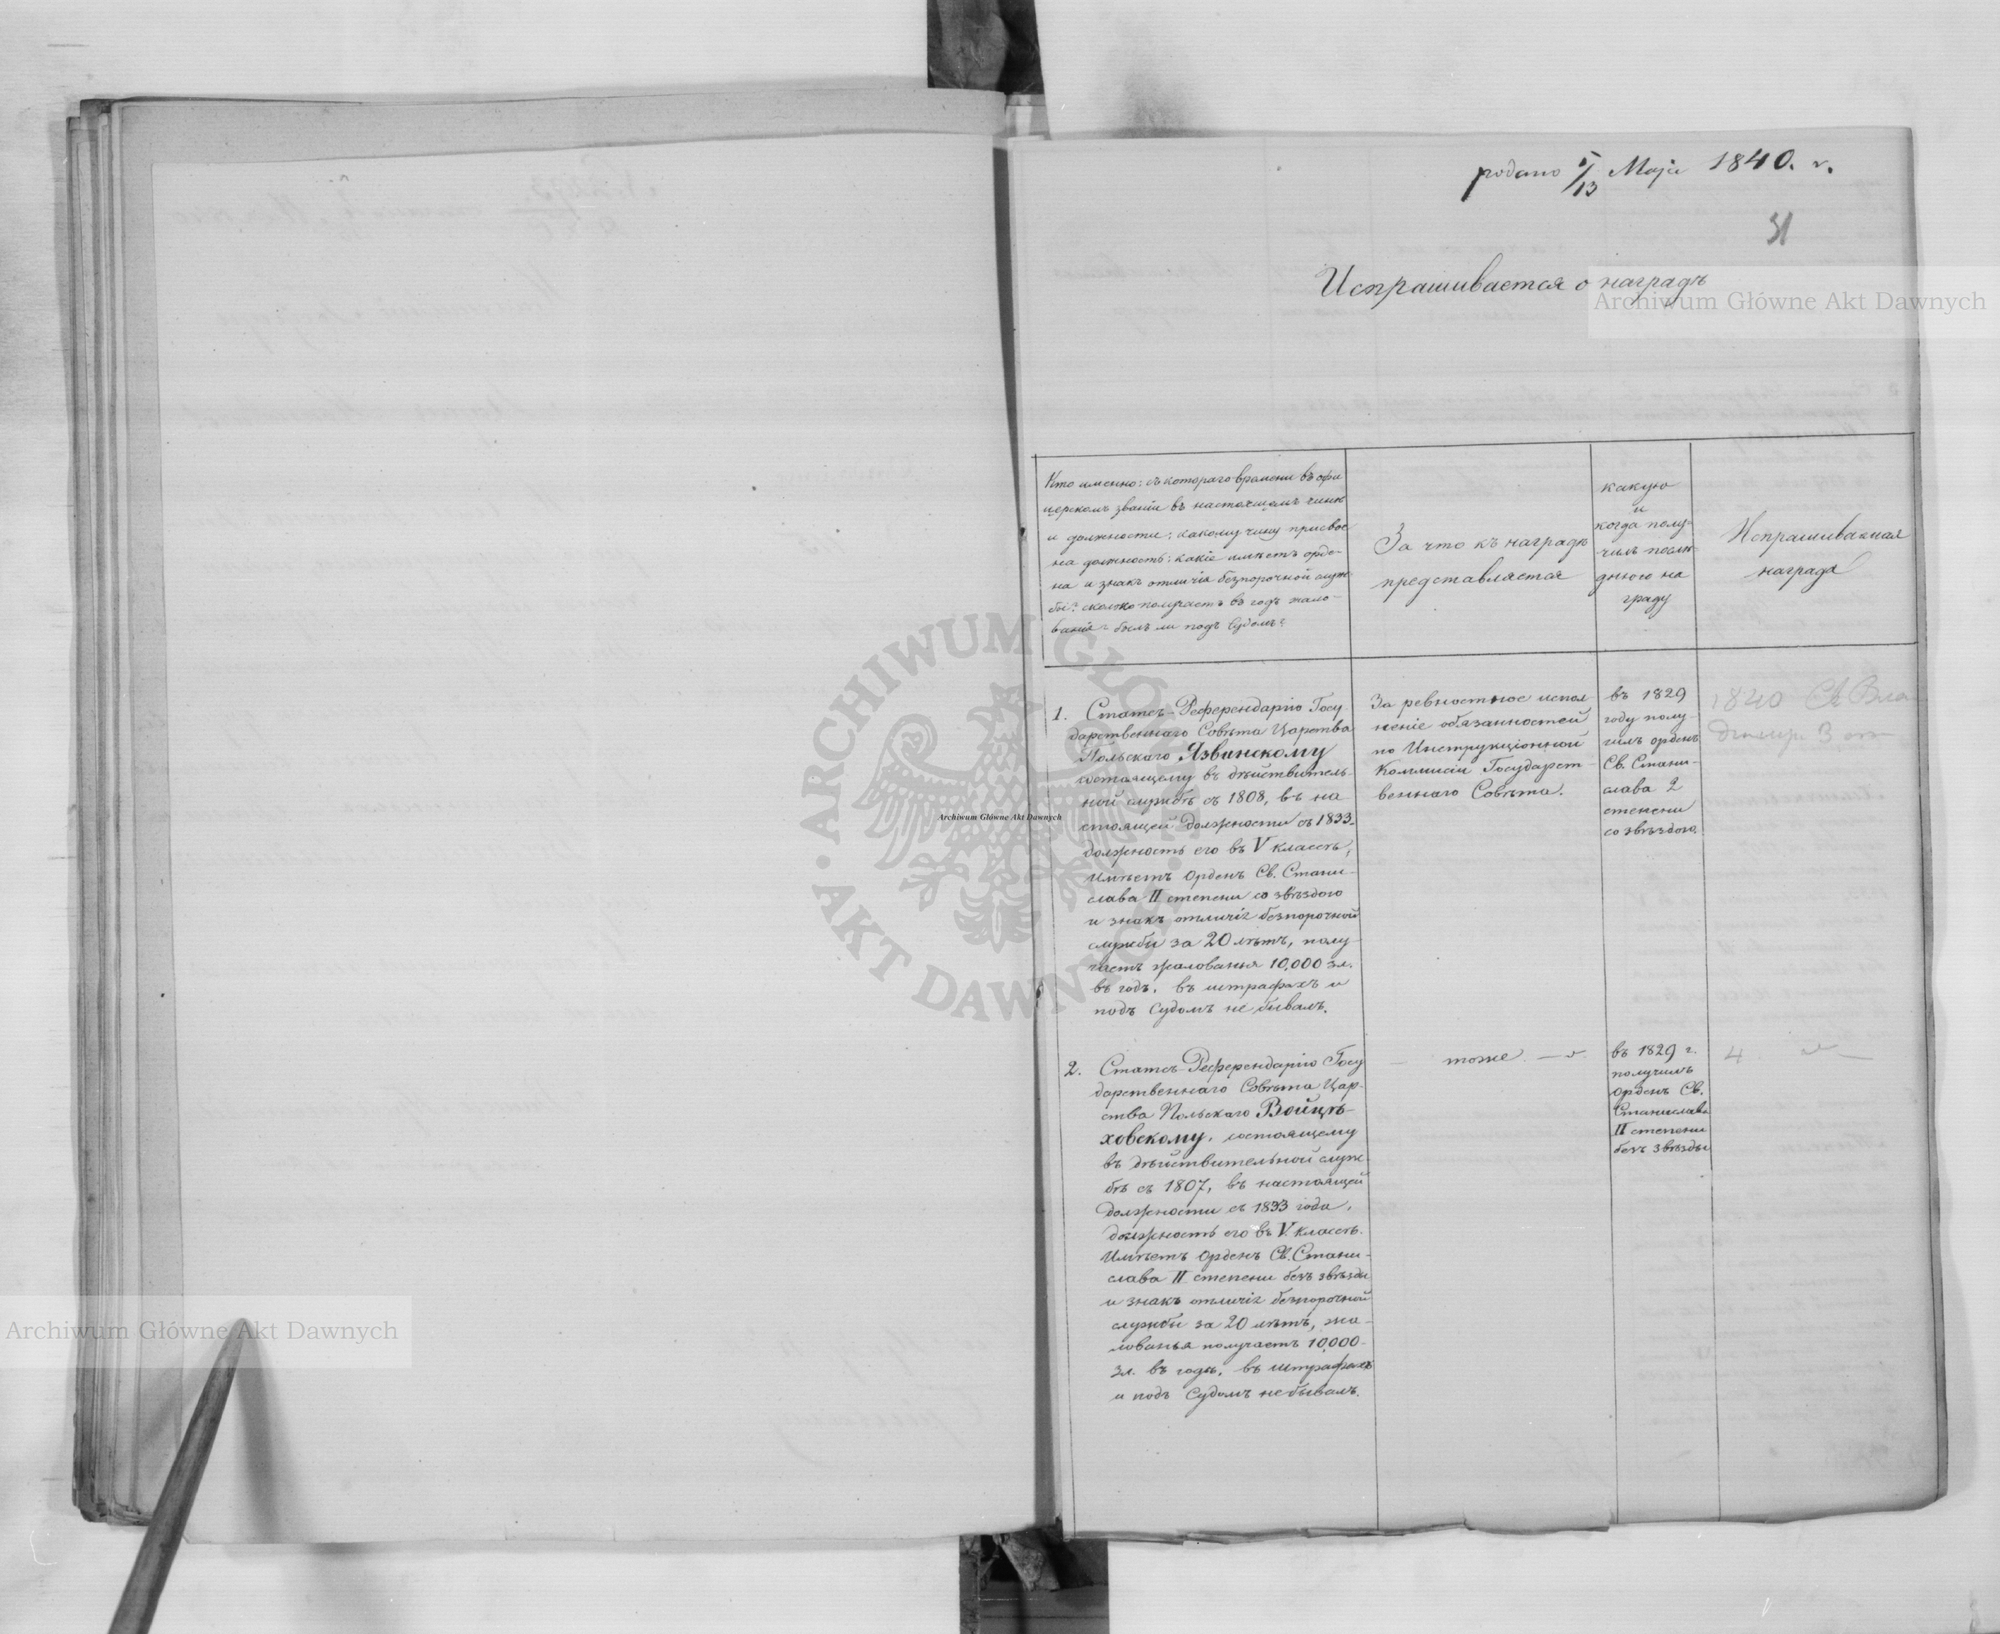 podano 1/13 Maja 1840. r.
31
Испрашивается о наградѣ
Кто именно: съ котораго времени въ офи
церскомъ званіи въ настоящемъ чинѣ
и должности; какому чину присвое
на должность; какіе имѣетъ орде-
на и знакъ отличія безпорочной служ
бы? сколько получаетъ въ годъ жало-
ванія? былъ ли подъ Судомъ?
За что къ наградѣ
представляется
какую
и
когда полу-
чилъ послѣ
днюю на
граду
Испрашиваемая
награда
1. Статсъ-Референдарію Госу
дарственнаго Совѣта Царства
Польскаго Язвинскому
состоящему въ дѣйствитель-
ной службѣ съ 1808, въ на
стоящей должности съ 1833.
должность его въ V классѣ,
имѣетъ Орденъ Св. Стани-
слава II степени со звѣздою
и знакъ отличія безпорочной
службы за 20 лѣтъ, полу
чаетъ жалованья 10,000 зл.
въ годъ. въ штрафахъ и
подъ Судомъ не бывалъ.
За ревностное испол-
неніе обязанностей
по Инструкціонной
Коммисіи Государст-
веннаго Совѣта.
въ 1829
году полу-
чилъ орденъ
Св. Стани-
слава 2
степени
со звѣздою.
1840 Св Вла
димир. 3 ст
2. Статсъ-Референдарію Госу
дарственнаго Совѣта Цар-
ства Польскаго Войцѣ-
ховскому, состоящему
въ дѣйствительной служ-
бѣ съ 1807, въ настоящей
должности съ 1833 года,
должность его въ V классѣ.
Имѣетъ Орденъ Св. Стани-
слава II степени безъ звѣзды
и знакъ отличія безпорочной
службы за 20 лѣтъ, жа-
лованья получаетъ 10,000
зл. въ годъ. въ штрафахъ
и подъ Судомъ не бывалъ.
— тоже —
въ 1829 г.
получилъ
Орденъ Св.
Станислава
II степени
безъ звѣзды
4
Archiwum Główne Akt Dawnych
Archiwum Główne Akt Dawnych
Archiwum Główne Akt Dawnych
ARCHIWUM GŁÓWNE AKT DAWNYCH